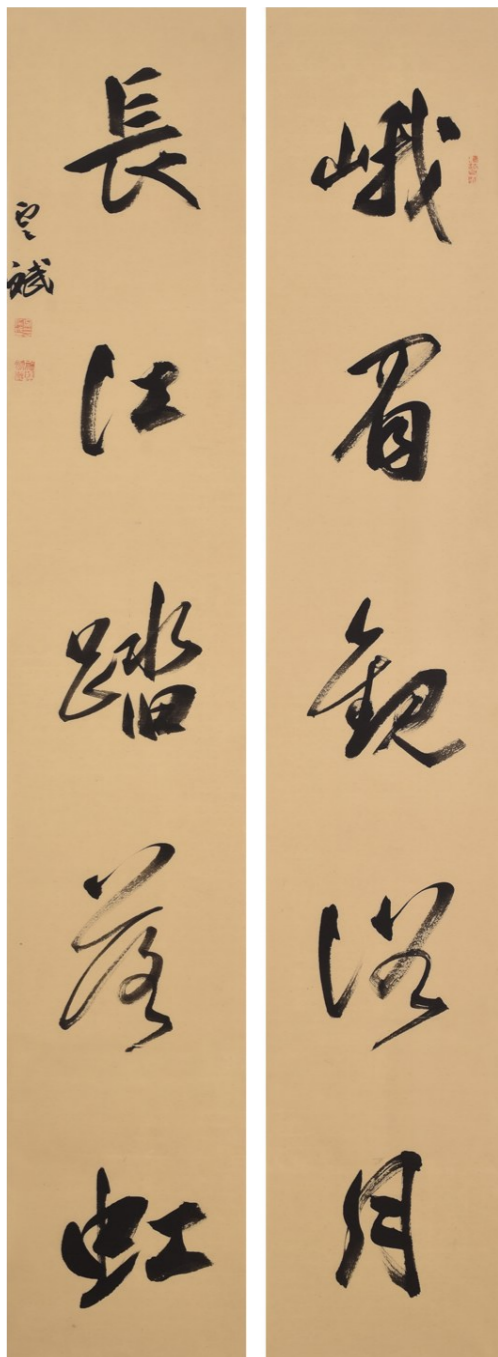 峨眉觀浴月
長江踏落虹